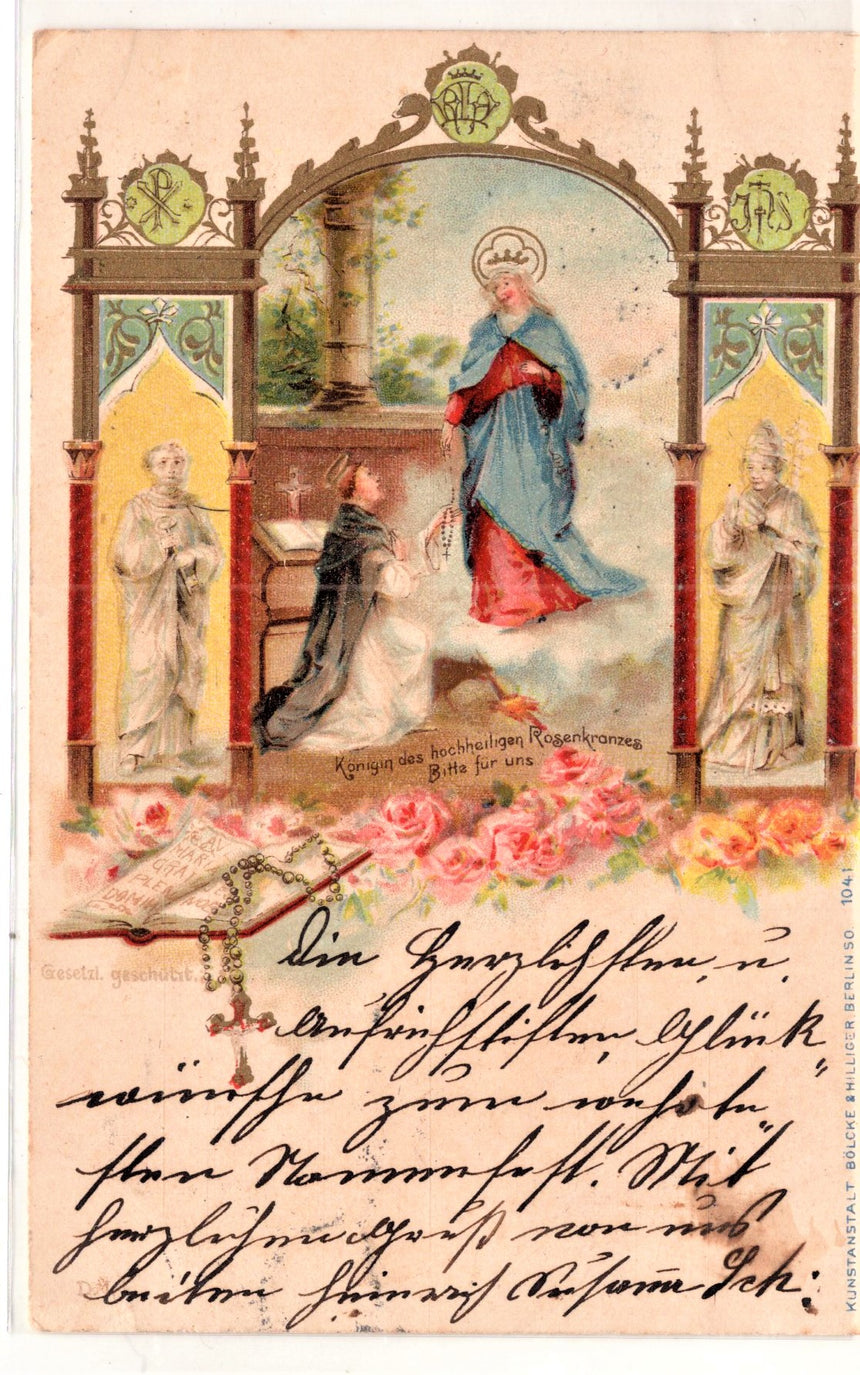 Königin des hochheiligen Rosenkranzes
Bitte für uns
Gesetzl. geschützt.
Die Herzlichsten u.
Aufrichtigsten Glück-
wünsche zum
sten Namensfest. Mit
herzlichem Gruß von uns
beiden Heinrich Susanna Sch:
KUNSTANSTALT BÖLCKE & HILLIGER BERLIN SO. 1041